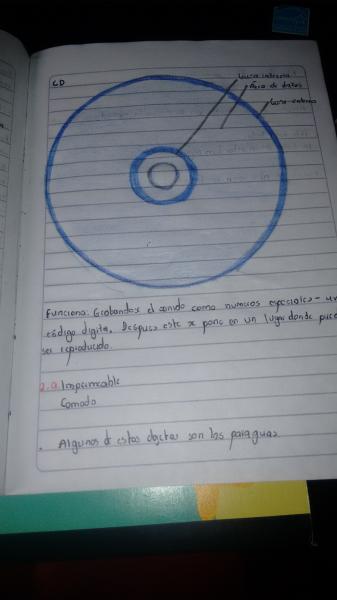 CD
Guia interna
Área de datos
Guia externa
Funciona: Grabandox el sonido como numeros especiales - un
código digital. Despues este x pone en un lugar donde puede
ser reproducido.
2.a Impermeable
Comodo
. Algunos d estos objetos son los paraguas